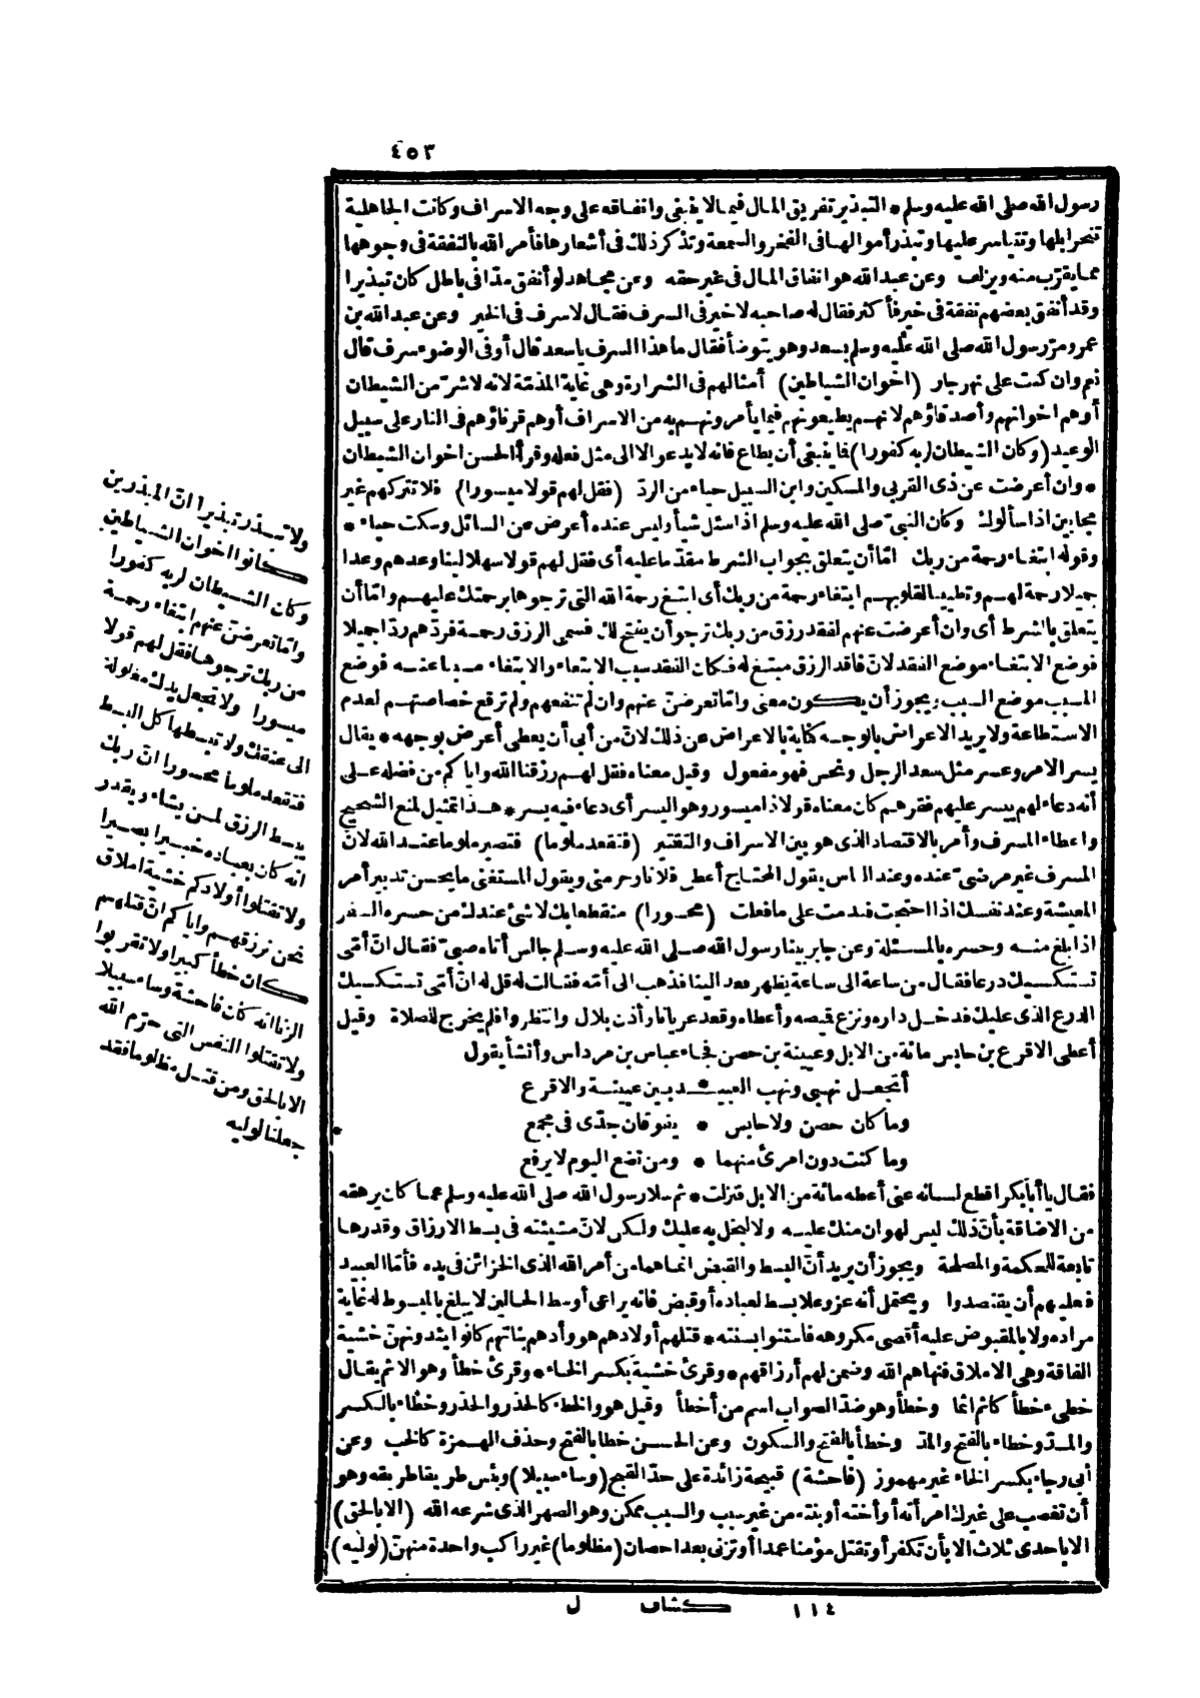 ٤٥٣
رسول الله صلى الله عليه وسلم • التبذير تفريق المال فيما لا ينبغى وانفاقه على وجه الاسراف وكانت الجاهلية
تنحر ابلها وتتياسر عليها وتبذر أموالها فى الفخر والسمعة وتذكر ذلك فى أشعارها فأمر الله بالنفقة فى وجوهها
مما يقرّب منه ويزلف وعن عبد الله هو انفاق المال فى غير حقه وعن مجاهد لو أنفق مدّا فى باطل كان تبذيرا
وقد أنفق بعضهم نفقة فى خير فأكثر فقال له صاحبه لا خير فى السرف فقال لا سرف فى الخير وعن عبد الله بن
عمرو مرّ رسول الله صلى الله عليه وسلم بسعد وهو يتوضأ فقال ما هذا السرف يا سعد قال أوفى الوضوء سرف قال
نعم وان كنت على نهر جار (اخوان الشياطين) أمثالهم فى الشرارة وهى غاية المذمّة لانه لا شرّ من الشيطان
أوهم اخوانهم وأصدقاؤهم لانهم يطيعونهم فيما يأمرونهم به من الاسراف أوهم قرناؤهم فى النار على سبيل
الوعيد (وكان الشيطان لربه كفورا) فما ينبغى أن يطاع فانه لا يدعو الا الى مثل فعله وقرأ الحسن اخوان الشيطان
• وان أعرضت عن ذى القربى والمسكين وابن السبيل حياء من الردّ (فقل لهم قولا ميسورا) فلا تتركهم غير
مجابين اذا سألوك وكان النبىّ صلى الله عليه وسلم اذا سئل شيأ وليس عنده أعرض عن السائل وسكت حياء •
وقوله ابتغاء رحمة من ربك امّا أن يتعلق بجواب الشرط مقدّما عليه أى فقل لهم قولا سهلا لينا وعدهم وعدا
جميلا رحمة لهم وتطييبا لقلوبهم ابتغاء رحمة من ربك أى ابتغ رحمة الله التى ترجوها برحمتك عليهم وامّا أن
يتعلق بالشرط أى وان أعرضت عنهم لفقد رزق من ربك ترجو أن يفتح لك فسمى الرزق رحمة فردّهم ردّا جميلا
فوضع الابتغاء موضع الفقد لانّ فاقد الرزق مبتغ له فكان الفقد سبب الابتغاء والابتغاء مسببا عنه فوضع
المسبب موضع السبب ويجوز أن يكون معنى وامّا تعرضنّ عنهم وان لم تنفعهم ولم ترفع خصاصتهم لعدم
الاستطاعة ولا يريد الاعراض بالوجه كناية بالاعراض عن ذلك لانّ من أبى أن يعطى أعرض بوجهه • يقال
يسر الامر وعسر مثل سعد الرجل ونحس فهو مفعول وقيل معناه فقل لهم رزقنا الله واياكم من فضله على
أنه دعاء لهم ييسر عليهم فقرهم كان معناه قولا ذا ميسور وهو اليسر أى دعاء فيه يسر • هذا تمثيل لمنع الشحيح
واعطاء المسرف وأمر بالاقتصاد الذى هو بين الاسراف والتقتير (فتقعد ملوما) فتصير ملوما عند الله لانّ
المسرف غير مرضىّ عنده وعند الناس يقول المحتاج أعطى فلانا وحرمنى ويقول المستغنى ما يحسن تدبير أمر
المعيشة وعند نفسك اذا احتجت فندمت على ما فعلت (محسورا) منقطعا بك لا شئ عندك من حسره السفر
اذا بلغ منه وحسره بالمسئلة وعن جابر بينا رسول الله صلى الله عليه وسلم جالس أتاه صبىّ فقال انّ أمّى
تستكسيك درعا فقال من ساعة الى ساعة يظهر فعد الينا فذهب الى أمّه فقالت له قل له انّ أمّى تستكسيك
الدرع الذى عليك فدخل داره ونزع قميصه وأعطاه وقعد عريانا وأذن بلال وانتظروا فلم يخرج للصلاة وقيل
أعطى الاقرع بن حابس مائة من الابل وعيينة بن حصن فجاء عباس بن مرداس وأنشأ يقول
أتجعل نهبى ونهب العبيـد بين عيينة والاقرع
وما كان حصن ولا حابس • يفوقان جدّى فى مجمع
وما كنت دون امرئ منهما • ومن تضع اليوم لا يرفع
فقال يا أبا بكر اقطع لسانه عنى أعطه مائة من الابل فنزلت • ثم سلا رسول الله صلى الله عليه وسلم عما كان يرهقه
من الاضاقة بأنّ ذلك ليس لهوان منك عليه ولا لبخل به عليك ولكن لانّ مشيئته فى بسط الارزاق وقدرها
تابعة للحكمة والمصلحة ويجوز أن يريد أنّ البسط والقبض انما هما من أمر الله الذى الخزائن فى يده فأمّا العبيد
فعليهم أن يقتصدوا ويحتمل أنه عز وعلا بسط لعباده أو قبض فانه يراعى أوسط الحالين لا يبلغ بالمبسوط له غاية
مراده ولا بالمقبوض عليه أقصى مكروهه فاستنوا بسنته • قتلهم أولادهم هو وأدهم بناتهم كانوا يئدونهنّ خشية
الفاقة وهى الاملاق فنهاهم الله وضمن لهم أرزاقهم • وقرئ خشية بكسر الخاء • وقرئ خطأ وهو الاثم يقال
خطىء خطأ كأثم اثما وخطأ وهو ضدّ الصواب اسم من أخطأ وقيل هو والخطء كالحذر والحذر وخطاء بالكسر
والمدّ وخطاء بالفتح والمدّ وخطأ بالفتح والسكون وعن الحسن خطا بالفتح وحذف الهمزة كالخب وعن
أبى رجاء بكسر الخاء غير مهموز (فاحشة) قبيحة زائدة على حدّ القبح (وساء سبيلا) وبئس طريقا طريقه وهو
أن تغصب على غيرك امرأته أو أخته أو بنته من غير سبب والسبب ممكن وهو الصهر الذى شرعه الله (الا بالحق)
الا باحدى ثلاث الا بأن تكفر أو تقتل مؤمنا عمدا أو تزنى بعد احصان (مظلوما) غير راكب واحدة منهنّ (لوليه)
ولا تبذر تبذيرا انّ المبذرين
كانوا اخوان الشياطين
وكان الشيطان لربه كفورا
وامّا تعرضنّ عنهم ابتغاء رحمة
من ربك ترجوها فقل لهم قولا
ميسورا ولا تجعل يدك مغلولة
الى عنقك ولا تبسطها كل البسط
فتقعد ملوما محسورا انّ ربك
يبسط الرزق لمن يشاء ويقدر
انه كان بعباده خبيرا بصيرا
ولا تقتلوا أولادكم خشية املاق
نحن نرزقهم واياكم انّ قتلهم
كان خطأ كبيرا ولا تقربوا
الزنا انه كان فاحشة وساء سبيلا
ولا تقتلوا النفس التى حرّم الله
الا بالحق ومن قتل مظلوما فقد
جعلنا لوليه
١١٤ كشاف ل